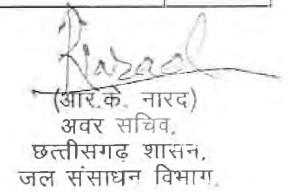 (आर.के. नारद)
अवर सचिव,
छत्तीसगढ़ शासन,
जल संसाधन विभाग,